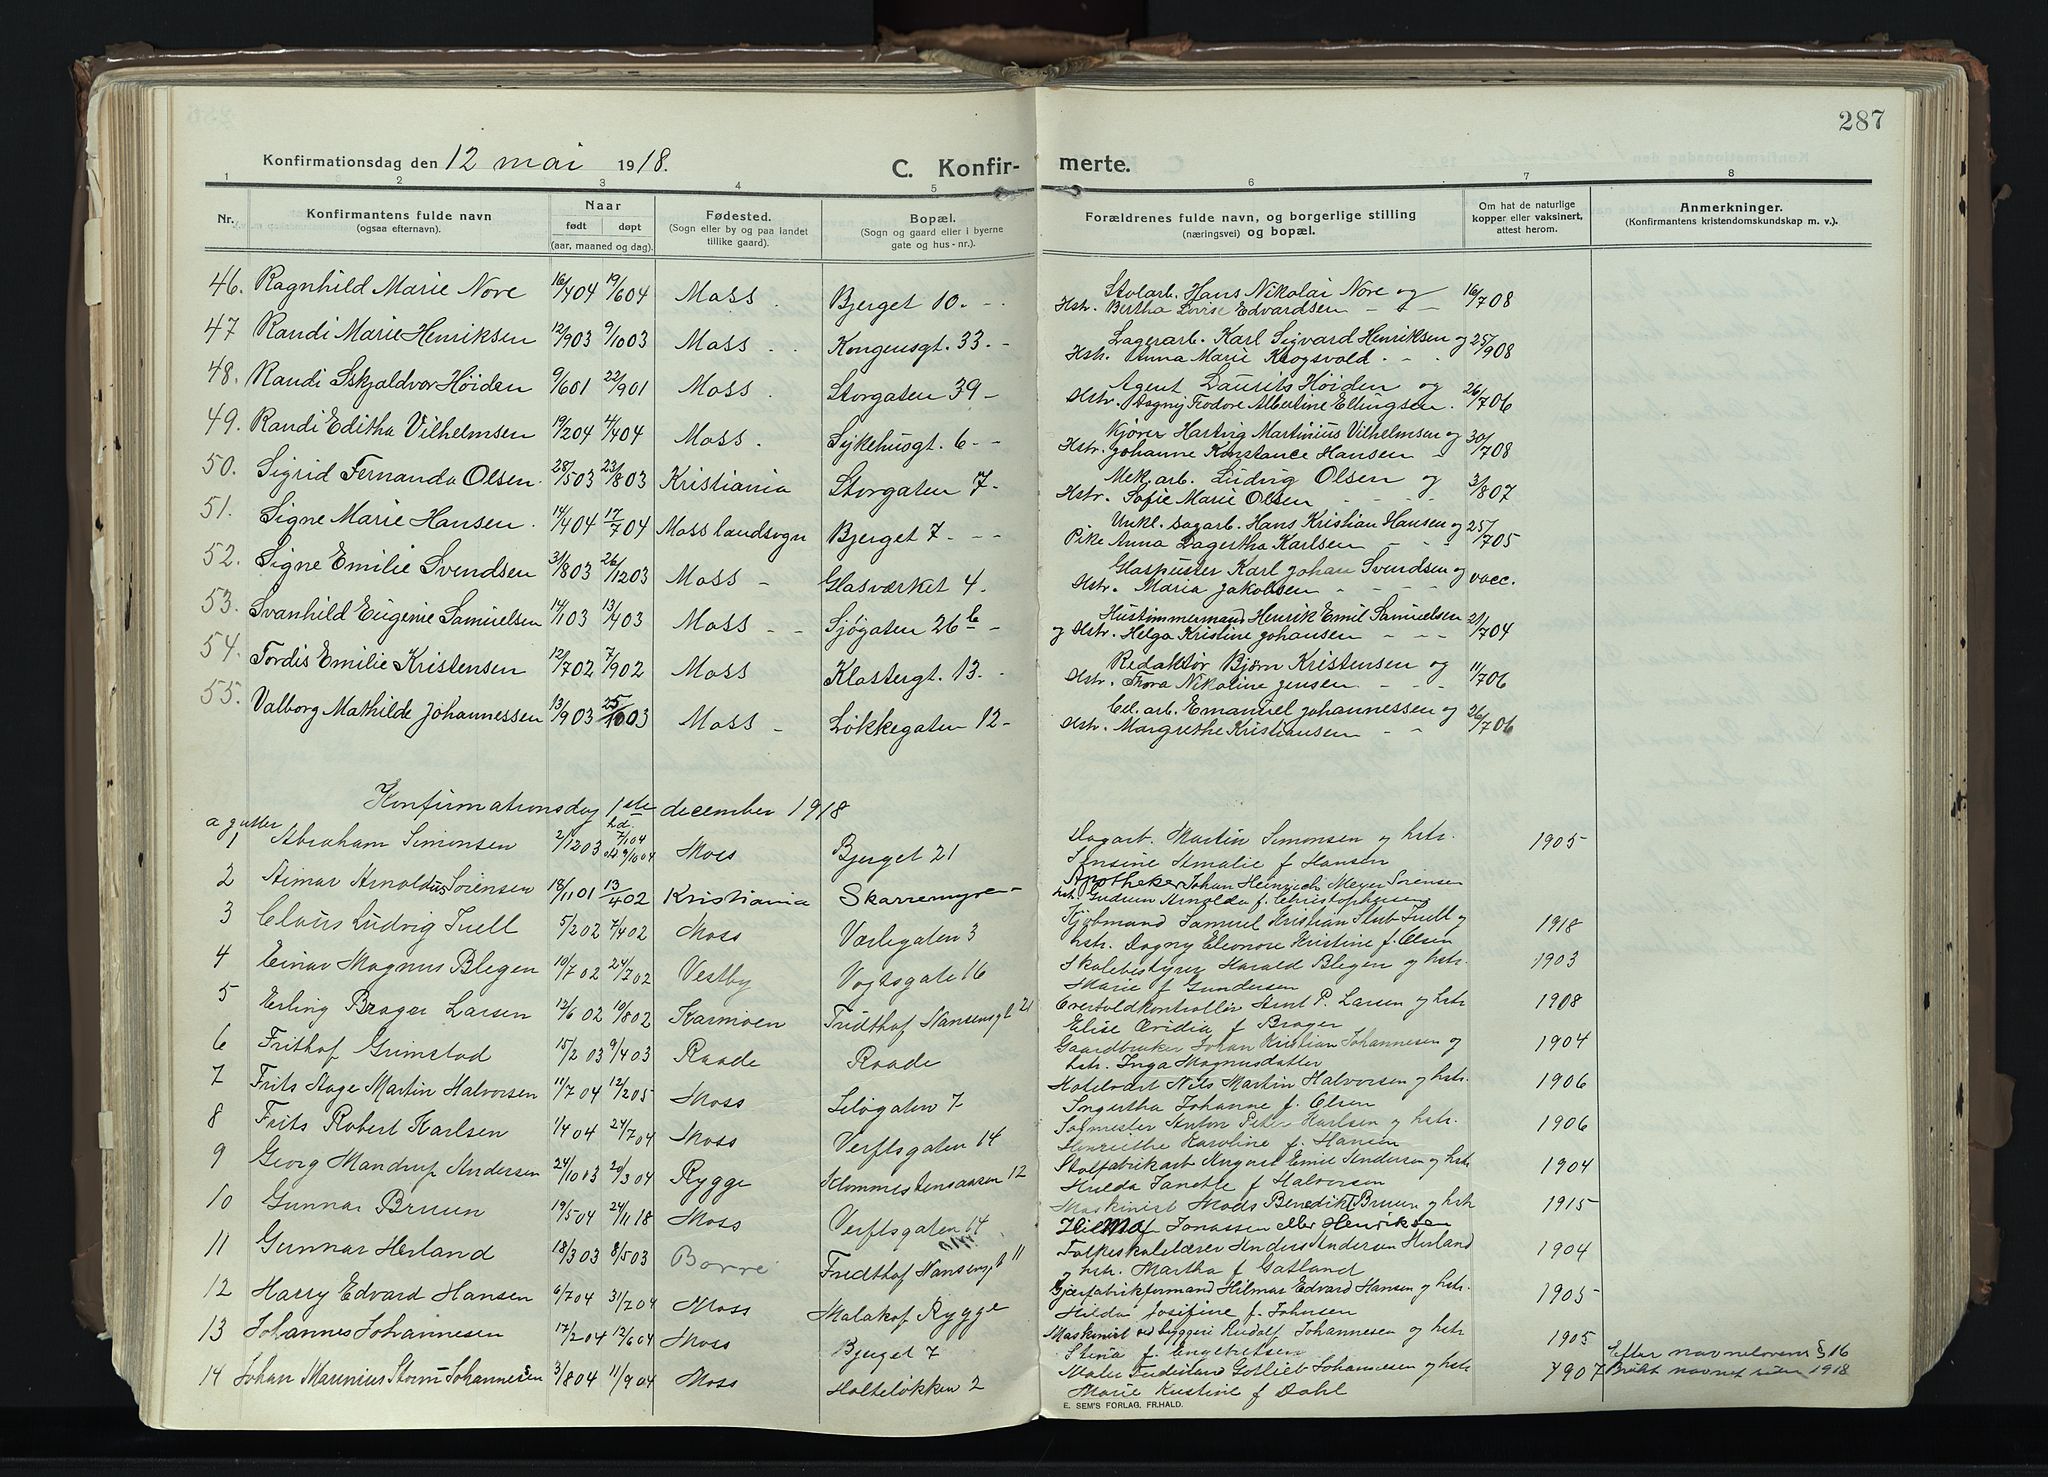 287
Konfirmationsdag den 12 mai 1918.
C. Konfir-merte.
1 2 3 4 5 6 7 8
Nr.
Konfirmantens fulde navn
(ogsaa efternavn).
Naar
født døpt
(aar, maaned og dag).
Fødested.
(Sogn eller by og paa landet
tillike gaard).
Bopæl.
(Sogn og gaard eller i byerne
gate og hus-nr.).
Forældrenes fulde navn, og borgerlige stilling
(næringsvei) og bopæl.
Om hat de naturlige
kopper eller vaksinert,
attest herom.
Anmerkninger.
(Konfirmantens kristendomskundskap m. v.).
46. Ragnhild Marie Nore 16/4 04 19/6 04 Moss Bjerget 10. Stolarb. Hans Nikolai Nore og 16/7 08
Hstr. Bertha Lovise Edvardsen
47 Randi Marie Henriksen 12/9 03 9/10 03 Moss Kongensgt. 33. Lagerarb. Karl Sigvard Henriksen og 25/9 08
Hstr. Anna Marie Krogsvold
48. Randi Sskjaldvor Høiden 9/6 01 22/9 01 Moss Storgaten 39 Agent Laurits Høiden og 26/7 06
Hstr. Dagny Teodore Albertine Ellingsen
49. Randi Editha Vilhelmsen 19/2 04 4/4 04 Moss. Sykehusgt. 6 Kjører Hartvig Martinius Vilhelmsen og 30/7 08
Hstr. Johanne Konstance Hansen
50. Sigrid Fernanda Olsen 28/5 03 23/8 03 Kristiania Storgaten 7 Mek. arb. Ludvig Olsen og 3/8 07
Hstr. Sofie Marie Olsen
51. Signe Marie Hansen 14/4 04 17/7 04 Moss landsogn Bjerget 7 Unkl. sagarb. Hans Kristian Hansen og 25/7 05
Pike Anna Dagertha Karlsen
52. Signe Emilie Svendsen 31/8 03 26/12 03 Moss Glasværket 4. Glaspuster Karl Johan Svendsen og vacc.
Hstr. Maria Jakobsen
53. Svanhild Eugenie Samuelsen 14/1 03 13/4 03 Moss Sjøgaten 26 b Hustimmermand Henrik Emil Samuelsen 21/7 04
og Hstr. Helga Kristine Johansen
54. Tordis Emilie Kristensen 12/7 02 7/9 02 Moss Klostergt. 13. Redaktør Bjørn Kristensen og 11/7 06
Hstr. Thora Nikoline Jensen
55. Valborg Mathilde Johannessen 13/9 03 25/10 03 Moss Løkkegaten 12 Cel. arb. Emanuel Johannessen og 26/7 06
Hstr. Margrethe Kristiansen
Konfirmationsdag 1ste december 1918
a gutter
1 Abraham Simonsen 2/12 03 hd. 7/1 04 9/10 04 Moss Bjerget 21 Dagarb. Martin Simonsen og hstr. 1905
Jensine Amalie f Hansen
2 Aimar Arnoldus Sörensen 18/11 01 13/4 02 Kristiania Skarremyren Apotheker Johan Heinrich Meyer Sörensen
hstr. Gudrun Arnolda f. Christophersen
3 Claus Ludvig Tuell 5/2 02 7/4 02 Moss Værlegaten 3 Kjøbmand Samuel Kristian Stub Tuell og 1918
hstr. Dagny Eleonore Kristine f. Olsen
4 Einar Magnus Blegen 10/7 02 24/7 02 Vestby Vogtsgate 16 Skolebestyrer Harald Blegen og hstr. 1903
Marie f Gundersen
5 Erling Brager Larsen 12/6 02 10/8 02 Karmöen Fridthof Nansensgt 21 Overtoldkontrollör Arnt P. Larsen og hstr 1908
Elise Ovidia f Brager
6 Frithof Grimstad 15/2 03 9/4 03 Raade Raade Gaardbruker Johan Kristian Johannesen og 1904
hstr. Inga Magnusdatter
7 Frits Aage Martin Halvorsen 11/7 04 12/2 05 Moss Leløgaten 7 Hotelvært Nils Martin Halvorsen og hstr. 1906
Ingertha Johanne f. Olsen
8 Frits Robert Karlsen 1/4 04 24/7 04 Moss Verftsgaten 14 Anton Peter Karlsen og hstr. 1906
Henriette Karoline f. Hansen
9 Georg Mandrup Andersen 24/10 03 20/3 04 Rygge Klommestensaasen 12 Stolfabrikarb August Emil Andersen og hstr 1904
Hulda Janette f Halvorsen
10 Gunnar Bruun 19/5 04 24/11 18 Moss Verftsgaten 14 Maskinist Mads Benedikt Bruun og hstr 1915
Hilma f Jonassen eller Henriksen
11 Gunnar Herland 18/3 03 8/5 03 Borre Fridthof Nansensgt 11 Folkeskolelærer Anders Andersen Herland 1904
og hstr. Martha f Gatland
12 Harry Edvard Hansen 6/7 04 31/7 04 Moss Malakof Rygge Gjærfabrikformand Hilmar Edvard Hansen og hstr. 1905
Hilda Josefine f. Johnsen
13 Johannes Johannesen 17/2 04 12/6 04 Moss Bjerget 7 Maskinist ved byggeri Rudolf Johannesen og hstr 1905
Stina f. Engebretsen
14 Johan Marinius Storm Johannessen 3/8 04 11/9 04 Moss Holteløkken 2 Maler Ferdinand Gotlieb Johannesen og hstr 1907 Efter navnelovens § 16
Marie Kristine f Dahl Brukt navnet siden 1918
E. SEM'S FORLAG, FR.HALD.